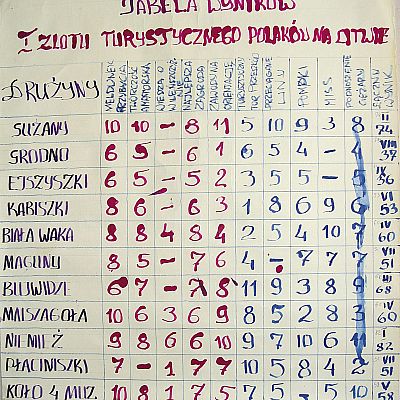 TABELA WYNIKÓW
I ZLOTU TURYSTYCZNEGO POLAKÓW NA LITWIE
DRUŻYNY
MELDUNEK PRZYBYCIA
TWÓRCZOŚĆ AMATORSKA
WIEDZA O
NAJLEPSZA ZAGRODA
ZAWODY NA ORIENTACJE
PRZECIĄGANIE LINU
POMPKI
MISS
PODNOSZENIE
ŁĄCZNY WYNIK
SUŻANY 10 10 - 8 11 5 10 9 3 8 II 74
GRODNO 6 5 - 6 1 6 5 4 - 4 VIII 37
EJSZYSZKI 6 5 - 5 2 3 5 5 - 5 IX 36
KABISZKI 8 6 - 6 3 1 8 6 9 6 VI 53
BIAŁA WAKA 8 8 4 8 4 2 5 4 10 7 IV 60
MAGUNY 8 5 - 7 6 4 - 7 7 7 VII 51
BUJWIDZE 6 7 - 7 8 11 9 3 8 9 III 68
MAISZAGOŁA 10 6 3 6 9 8 5 2 8 3 IV 60
NIEMIEŻ 9 8 6 6 10 9 7 10 6 11 I 82
PŁACINISZKI 7 - 1 7 7 10 5 8 4 2 VII 51
KOŁO 4 MUZ. 10 8 1 7 5 7 5 - 5 10 V 58